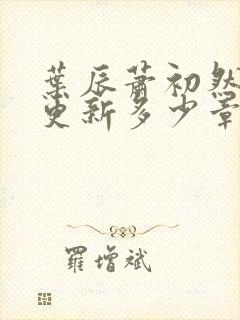 葉辰蕭初然
更新多少章
羅增斌